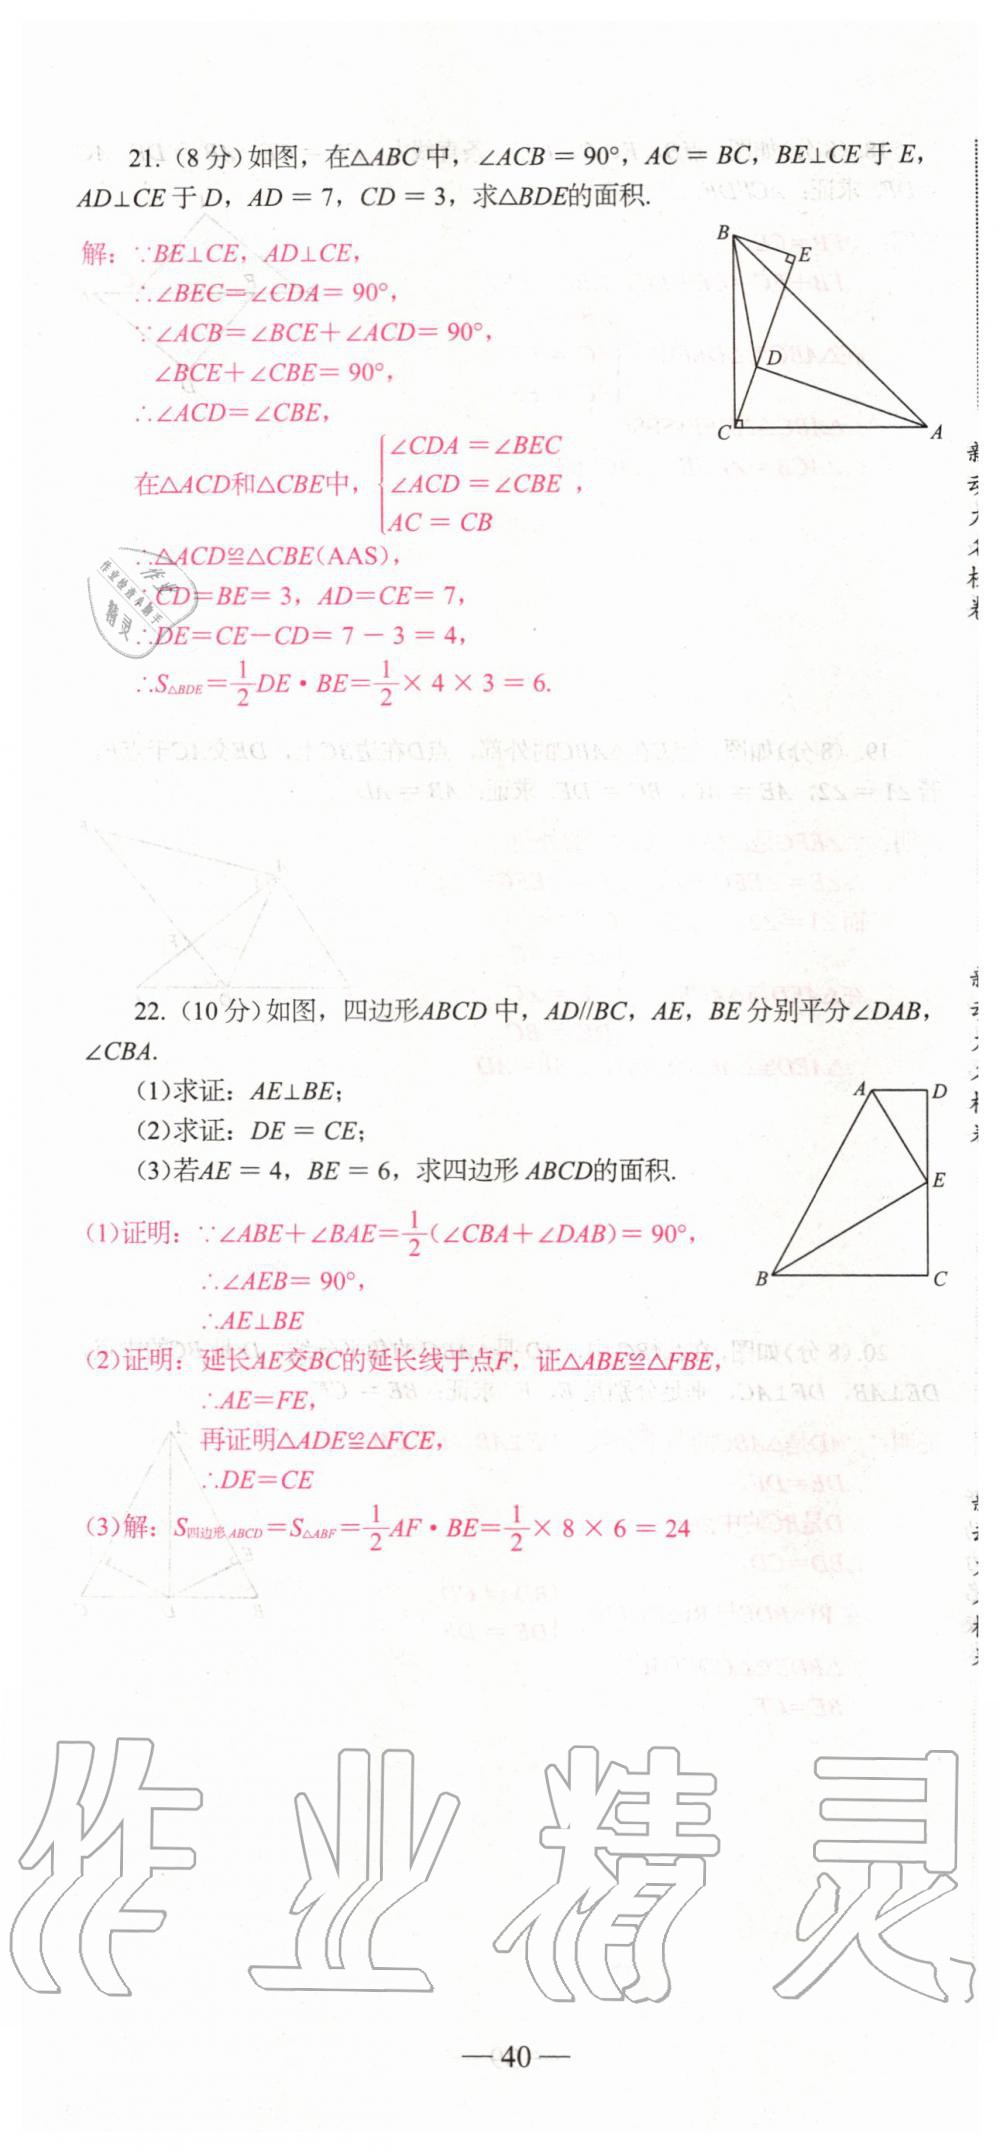 21. (8分)如图，在△ABC中，∠ACB＝90°，AC＝BC，BE⊥CE于E，
AD⊥CE于D，AD＝7，CD＝3，求△BDE的面积.
解：∵BE⊥CE，AD⊥CE，
∴∠BEC＝∠CDA＝90°，
∵∠ACB＝∠BCE＋∠ACD＝90°，
∠BCE＋∠CBE＝90°，
∴∠ACD＝∠CBE，
在△ACD和△CBE中，{∠CDA＝∠BEC
∠ACD＝∠CBE，
AC＝CB
∴△ACD≌△CBE(AAS)，
∴CD＝BE＝3，AD＝CE＝7，
∴DE＝CE－CD＝7－3＝4，
∴S△BDE＝1/2DE·BE＝1/2×4×3＝6.
B
E
D
C
A
22. (10分)如图，四边形ABCD中，AD//BC，AE，BE分别平分∠DAB，
∠CBA.
(1)求证：AE⊥BE；
(2)求证：DE＝CE；
(3)若AE＝4，BE＝6，求四边形ABCD的面积.
A
D
E
B
C
(1)证明：∵∠ABE＋∠BAE＝1/2(∠CBA＋∠DAB)＝90°，
∴∠AEB＝90°，
∴AE⊥BE
(2)证明：延长AE交BC的延长线于点F，证△ABE≌△FBE，
∴AE＝FE，
再证明△ADE≌△FCE，
∴DE＝CE
(3)解：S四边形ABCD＝S△ABF＝1/2AF·BE＝1/2×8×6＝24
作业
作业检查小助手
精灵
作业精灵
—40—